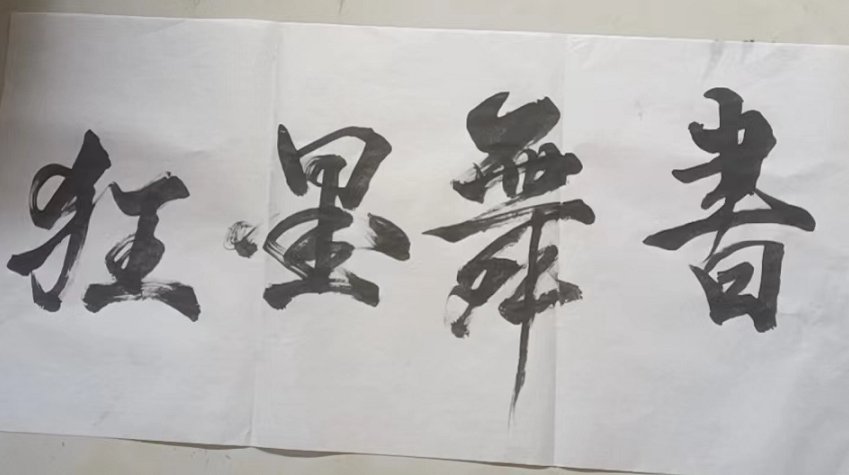 狂墨舞書